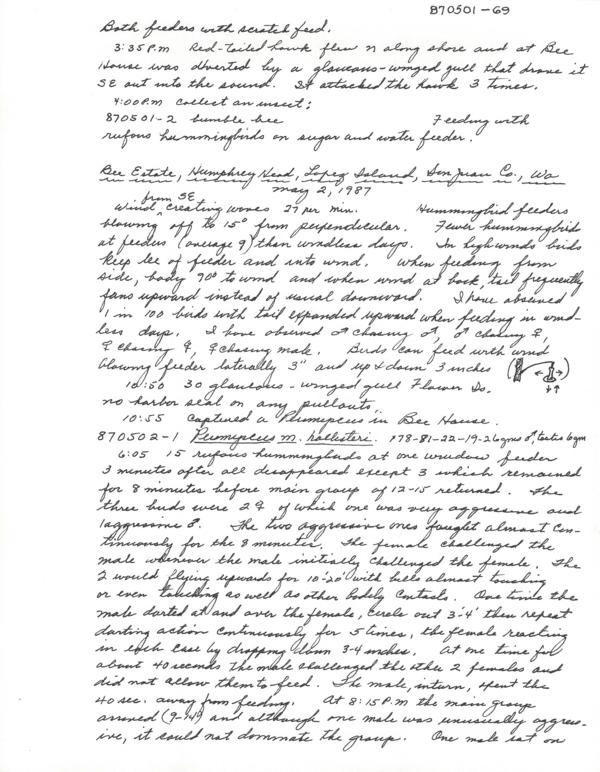 870501-69
Both feeders with scratch feed.
3:35 P.m Red-tailed hawk flew n along shore and at Bee
House was diverted by a glaucous-winged gull that drove it
SE out into the sound. It attacked the hawk 3 times.
4:00 P.m collect an insect:
870501-2 bumble bee Feeding with
rufous hummingbirds on sugar and water feeder.
Bee Estate, Humphrey Head, Lopez Island, San Juan Co., Wa
May 2, 1987
Wind from SE creating waves 27 per min. Hummingbird feeders
blowing off to 15° from perpendicular. Fewer hummingbird
at feeders (average 9) than windless days. In high winds birds
keep lee of feeder and into wind. When feeding from
side, body 90° to wind and when wind at back, tail frequently
fans upward instead of usual downward. I have observed
1 in 100 birds with tail expanded upward when feeding in wind-
less days. I have observed ♂ chasing ♂, ♂ chasing ♀,
♀ chasing ♀, ♀ chasing male. Birds can feed with wind
blowing feeder laterally 3" and up & down 3 inches
10:50 30 glaucous-winged gull Flower Is.
no harbor seal on any pullouts.
10:55 captured a Peromyscus in Bee House.
870502-1 Peromyscus m. hollisteri. 178-81-22-19-26gms ♂, testis 6mm
6:05 15 rufous hummingbirds at one window feeder
3 minutes after all disappeared except 3 which remained
for 8 minutes before main group of 12-15 returned. The
three birds were 2♀ of which one was very aggressive and
1 aggressive ♂. The two aggressive ones fought almost con-
tinuously for the 8 minutes. The female challenged the
male whenever the male initially challenged the female. The
2 would flying upwards for 10'-20' with bills almost touching
or even touching as well as other bodily contacts. One time the
male darted at and over the female, circle out 3'-4' then repeat
darting action continuously for 5 times, the female reacting
in each case by dropping down 3-4 inches. At one time for
about 40 seconds the male challenged the other 2 females and
did not allow them to feed. The male, in turn, spent the
40 sec. away from feeding. At 8:15 P.M the main group
arrived (9-14) and although one male was unusually aggress-
ive, it could not dominate the group. One male sat on